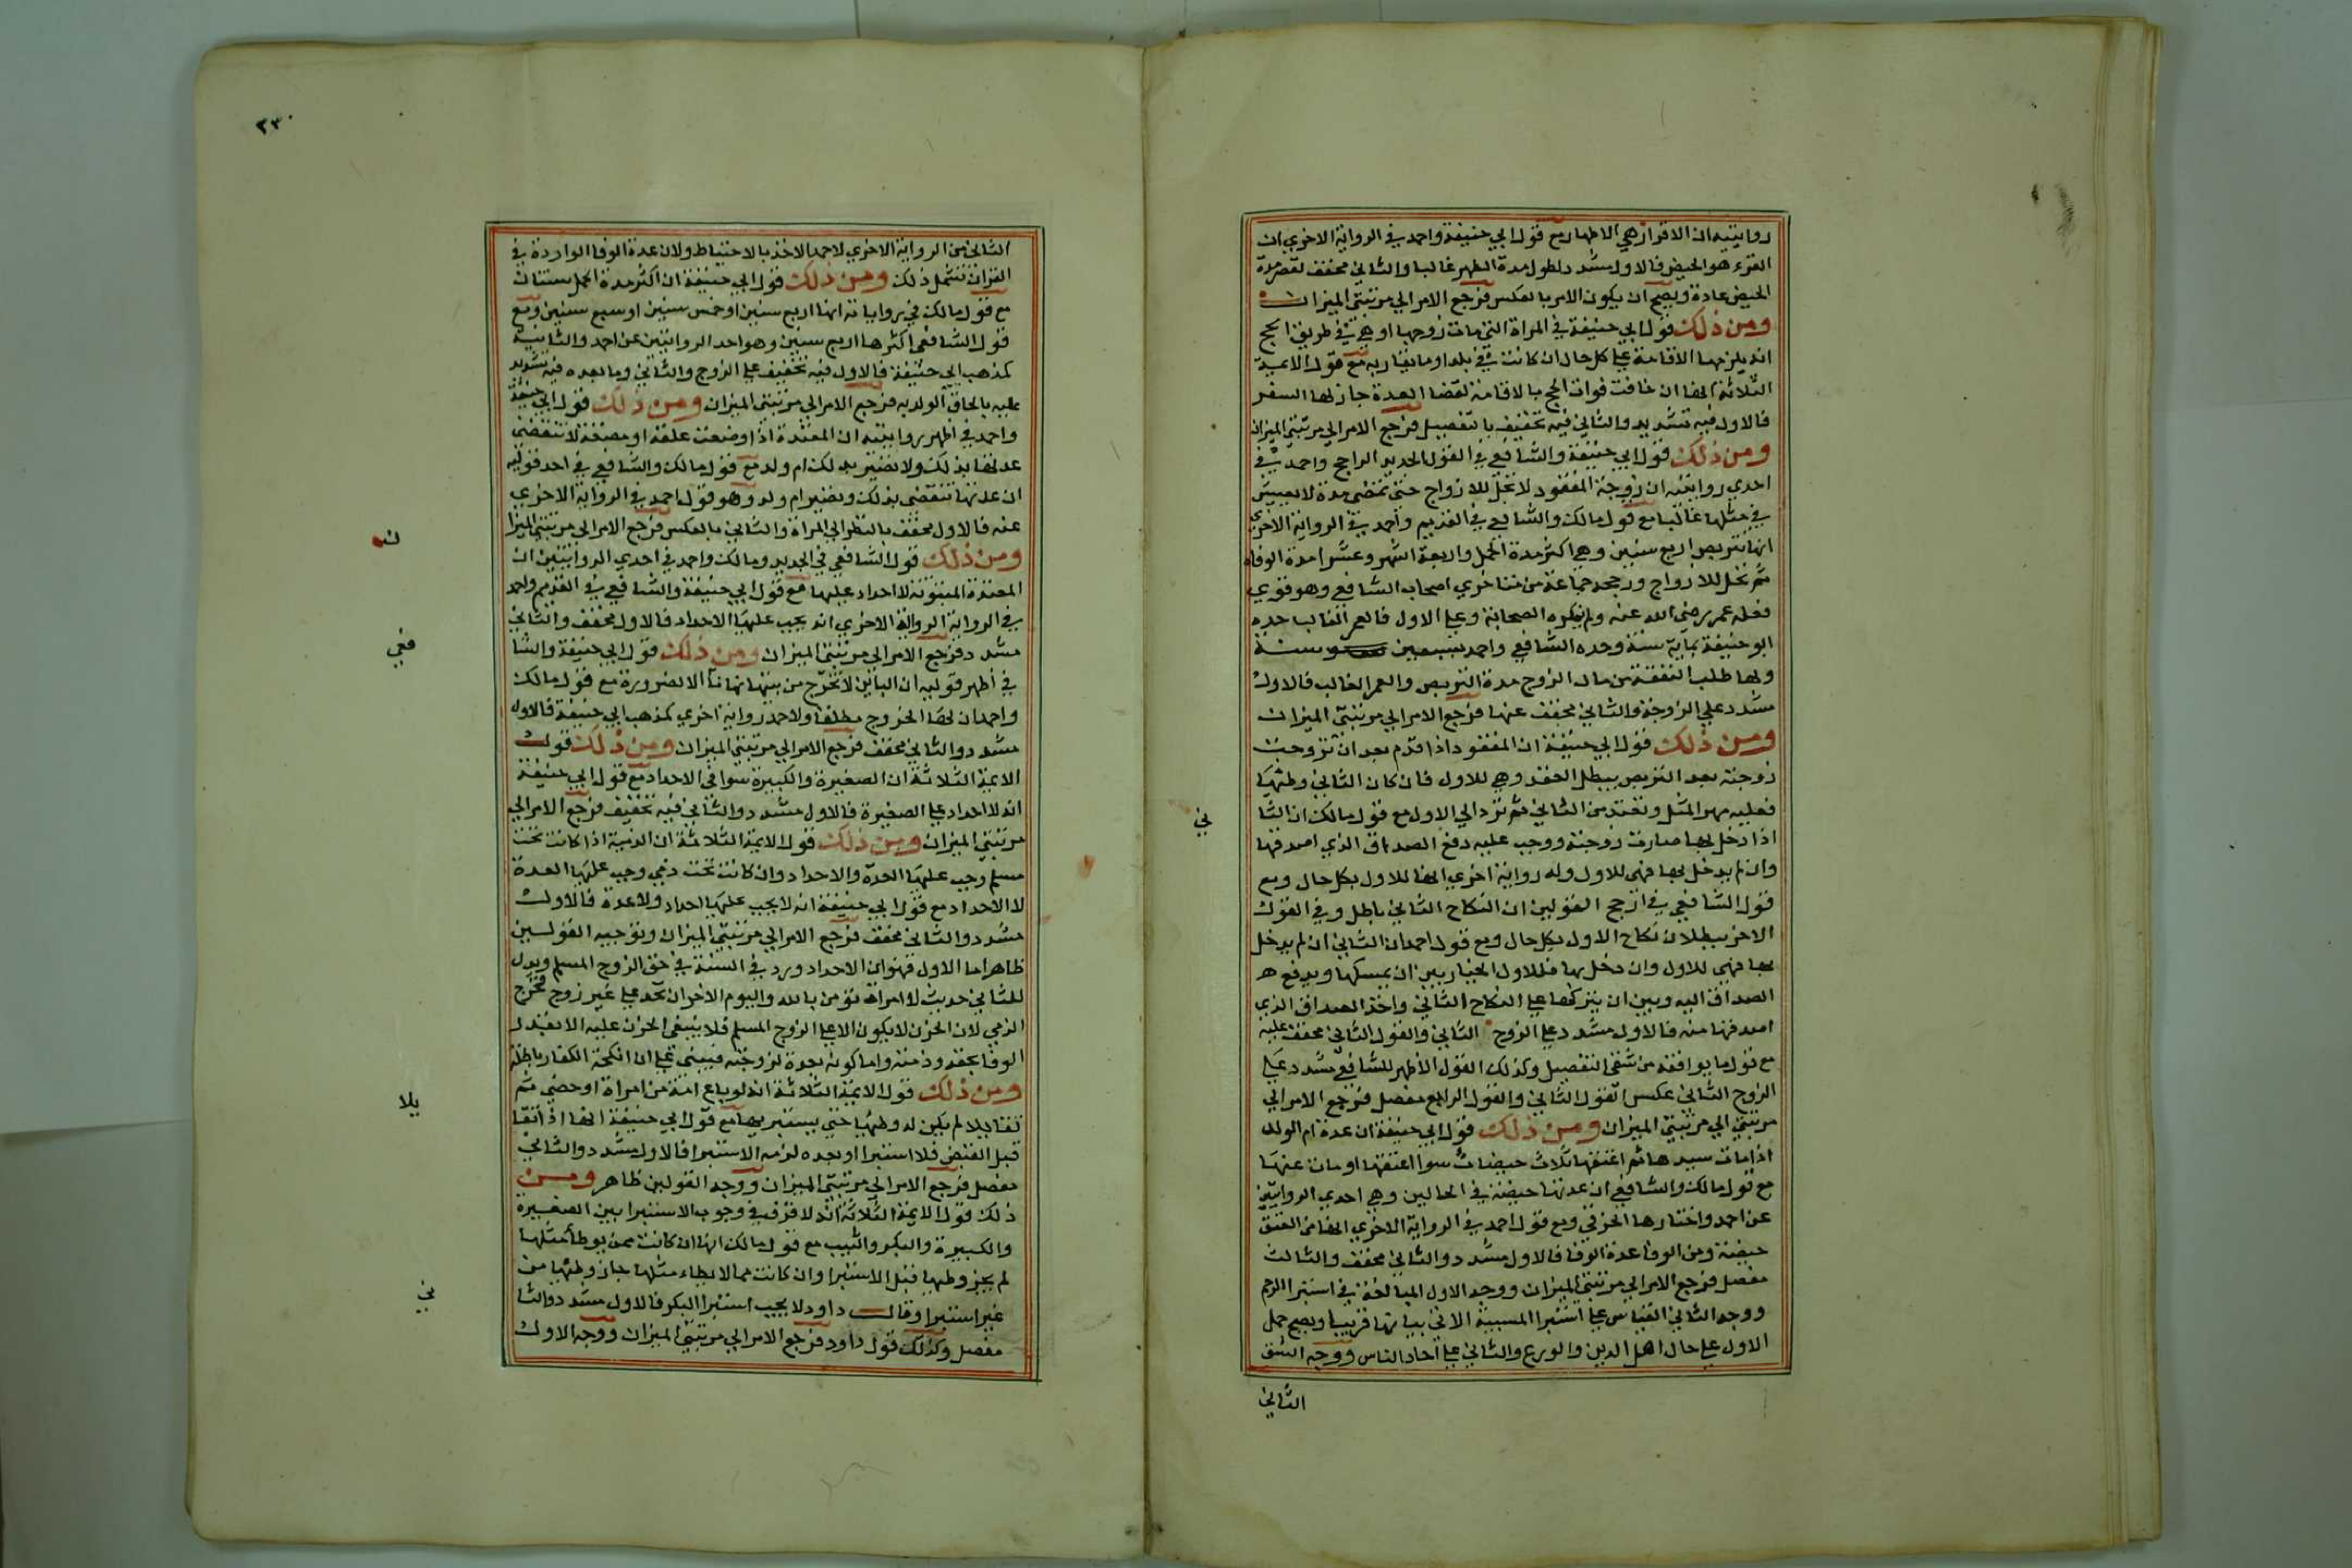 روايتيه ان الاقرا هي الاطهار مع قول ابي حنيفة واحمد في الرواية الاخري ان
القرء هو الحيض فالاول مشدد لطول مدة الطهر غالبا والثاني مخفف لقصر مدة
الحيض عادة ويصح ان يكون الامر بالعكس فرجع الامر الي مرتبتي الميزان
ومن ذلك قول ابي حنيفة في المراة التي مات زوجها وهي في طريق الحج
انه يلزمها الاقامة علي كل حال ان كانت في بلد او ما يقاربه مع قول الايمة
الثلاثة انها ان خافت فوات الحج بالاقامة لقضا العدة جاز لها السفر
فالاول فيه تشديد والثاني فيه تخفيف بالتفصيل فرجع الامر الي مرتبتي الميزان
ومن ذلك قول ابي حنيفة والشافعي في القول الجديد الراجح واحمد في
احدي روايتيه ان زوجة المفقود لا تحل للازواج حتي تمضي مدة لا يعيش
في مثلها غالبا مع قول مالك والشافعي في القديم واحمد في الرواية الاخري
انها تتربص اربع سنين وهي اكثر مدة الحمل واربعة اشهر وعشرا مدة الوفاة
ثم تحل للازواج ورجحه جماعة من متاخري اصحاب الشافعي وهو قوي
فعله عمر رضي الله عنه ولم ينكره الصحابة وعلي الاول فالعمر الغالب حده
ابو حنيفة بماية سنة وحده الشافعي واحمد بسبعين سنة
ولها طلب النفقة من مال الزوج مدة التربص والعمر الغالب فالاول
مشدد علي الزوجة والثاني مخفف عنها فرجع الامر الي مرتبتي الميزان
ومن ذلك قول ابي حنيفة ان المفقود اذا قدم بعد ان تزوجت
زوجته بعد التربص يبطل العقد وهي للاول فان كان الثاني وطئها
فعليه مهر المثل وتعتد من الثاني ثم ترد الي الاول مع قول مالك ان الثا
ني
اذا دخل بها صارت زوجته ووجب عليه دفع الصداق الذي اصدقها
وان لم يدخل بها فهي للاول وله رواية اخري انها للاول بكل حال ومع
قول الشافعي في ارجح القولين ان النكاح الثاني باطل وفي القول
الاخر بطلان نكاح الاول بكل حال ومع قول احمد ان الثاني ان لم يدخل
بها فهي للاول وان دخل بها فللاول الخيار بين ان يمسكها ويدفع
الصداق اليه وبين ان يتركها علي النكاح الثاني واخذ الصداق الذي
اصدقها منه فالاول مشدد علي الزوج الثاني والقول الثاني مخفف عليه
مع قول ما يوافقه من شقي التفصيل وكذلك القول الاظهر للشافعي مشدد علي
الزوج الثاني عكس القول الثاني والقول الرابع مفصل فرجع الامر الي
مرتبتي الي مرتبتي الميزان ومن ذلك قول ابي حنيفة ان عدة ام الولد
اذا مات سيدها ثم اعتقها ثلاث حيضات سوا اعتقها او مات عنها
مع قول مالك والشافعي ان عدتها حيضة في الحالين وهي احدي الروايتين
عن احمد واختارها الخرقي ومع قول احمد في الرواية الاخري انها من العتق
حيضة ومن الوفا عدة الوفا فالاول مشدد والثاني مخفف والثالث
مفصل فرجع الامر الي مرتبتي الميزان ووجه الاول المبالغة في استبرا الرحم
ووجه الثاني القياس علي استبرا المسبية الاتي بيانها قريبا ويصح حمل
الاول علي حال اهل الدين والورع والثاني علي احاد الناس ووجه الشق
الثاني
٢٣٠
الثاني من الرواية الاخري لاحمد الاخذ بالاحتياط ولان عدة الوفا الواردة في
القران تشمل ذلك ومن ذلك قول ابي حنيفة ان اكثر مدة الحمل سنتان
مع قول مالك في رواياته انها اربع سنين او خمس سنين او سبع سنين ومع
قول الشافعي اكثرها اربع سنين وهو احد الروايتين عن احمد والثانية
كمذهب ابي حنيفة فالاول فيه تخفيف علي الزوج والثاني وما بعده فيه تشديد
عليه بالحاق الولد به فرجع الامر الي مرتبتي الميزان ومن ذلك قول ابي حنيفة
واحمد في اظهر روايتيه ان المعتدة اذا وضعت علقة او مضغة لا تنقضي
عدتها بذلك ولا تصير بذلك ام ولد مع قول مالك والشافعي في احد قوليه
ان عدتها تنقضي بذلك وتصير ام ولد وهو قول احمد في الرواية الاخري
عنه فالاول مخفف بالنظر الي المراة والثاني بالعكس فرجع الامر الي مرتبتي الميزا
ن
ومن ذلك قول الشافعي في الجديد ومالك واحمد في احدي الروايتين ان
المعتدة المبتوتة لا احداد عليها مع قول ابي حنيفة والشافعي في القديم واحمد
في الرواية الرواية الاخري انه يجب عليها الاحداد فالاول مخفف والثاني
مشدد فرجع الامر الي مرتبتي الميزان ومن ذلك قول ابي حنيفة والشا
فعي
في اظهر قوليه ان الباين لا تخرج من بيتها نهارا الا لضرورة مع قول مالك
واحمد ان لها الخروج مطلقا ولاحمد رواية اخري كمذهب ابي حنيفة فالاول
مشدد والثاني مخفف فرجع الامر الي مرتبتي الميزان ومن ذلك قول
الايمة الثلاثة ان الصغيرة والكبيرة سوا في الاحداد مع قول ابي حنيفة
انه لا احداد علي الصغيرة فالاول مشدد والثاني فيه تخفيف فرجع الامر الي
مرتبتي الميزان ومن ذلك قول الايمة الثلاثة ان الذمية اذا كانت تحت
مسلم وجب عليها العدة والاحداد وان كانت تحت ذمي وجب عليها العدة
لا الاحداد مع قول ابي حنيفة انه لا يجب عليها احداد ولا عدة فالاول
مشدد والثاني مخفف فرجع الامر الي مرتبتي الميزان وتوجيه القولين
ظاهر اما الاول فهو ان الاحداد ورد في السنة في حق الزوج المسلم ويدل
للثاني حديث لامراة تؤمن بالله واليوم الاخر ان تحد علي غير زوج فخرج
الذمي لان الحزن لا يكون الا علي الزوج المسلم فلا ينبغي الحزن عليه الا بقدر
الوفا بعقد ذمته واما كونه بعدة لزوجته فيبني علي ان انكحة الكفار باطلة
ومن ذلك قول الايمة الثلاثة انه لو باع امته من امراة او خصي ثم
تقا
يلا
تقايلا لم يكن له وطئها حتي يستبريها مع قول ابي حنيفة انها اذا تقا
قبل القبض فلا استبرا او بعده لزمه الاستبرا فالاول مشدد والثاني
مفصل فرجع الامر الي مرتبتي الميزان ووجه القولين ظاهر ومن
ذلك قول الايمة الثلاثة انه لا فرق في وجوب الاستبرا بين الصغيرة
والكبيرة والبكر والثيب مع قول مالك انها ان كانت ممن يوطأ مثلها
لم يجز وطيها قبل الاستبرا وان كانت مما لا يطاء مثلها جاز وطئها من
غير استبرا وقال داود لا يجب استبرا البكر فالاول مشدد والثا
ني
مفصل وكذلك قول داود فرجع الامر الي مرتبتي الميزان ووجه الاول